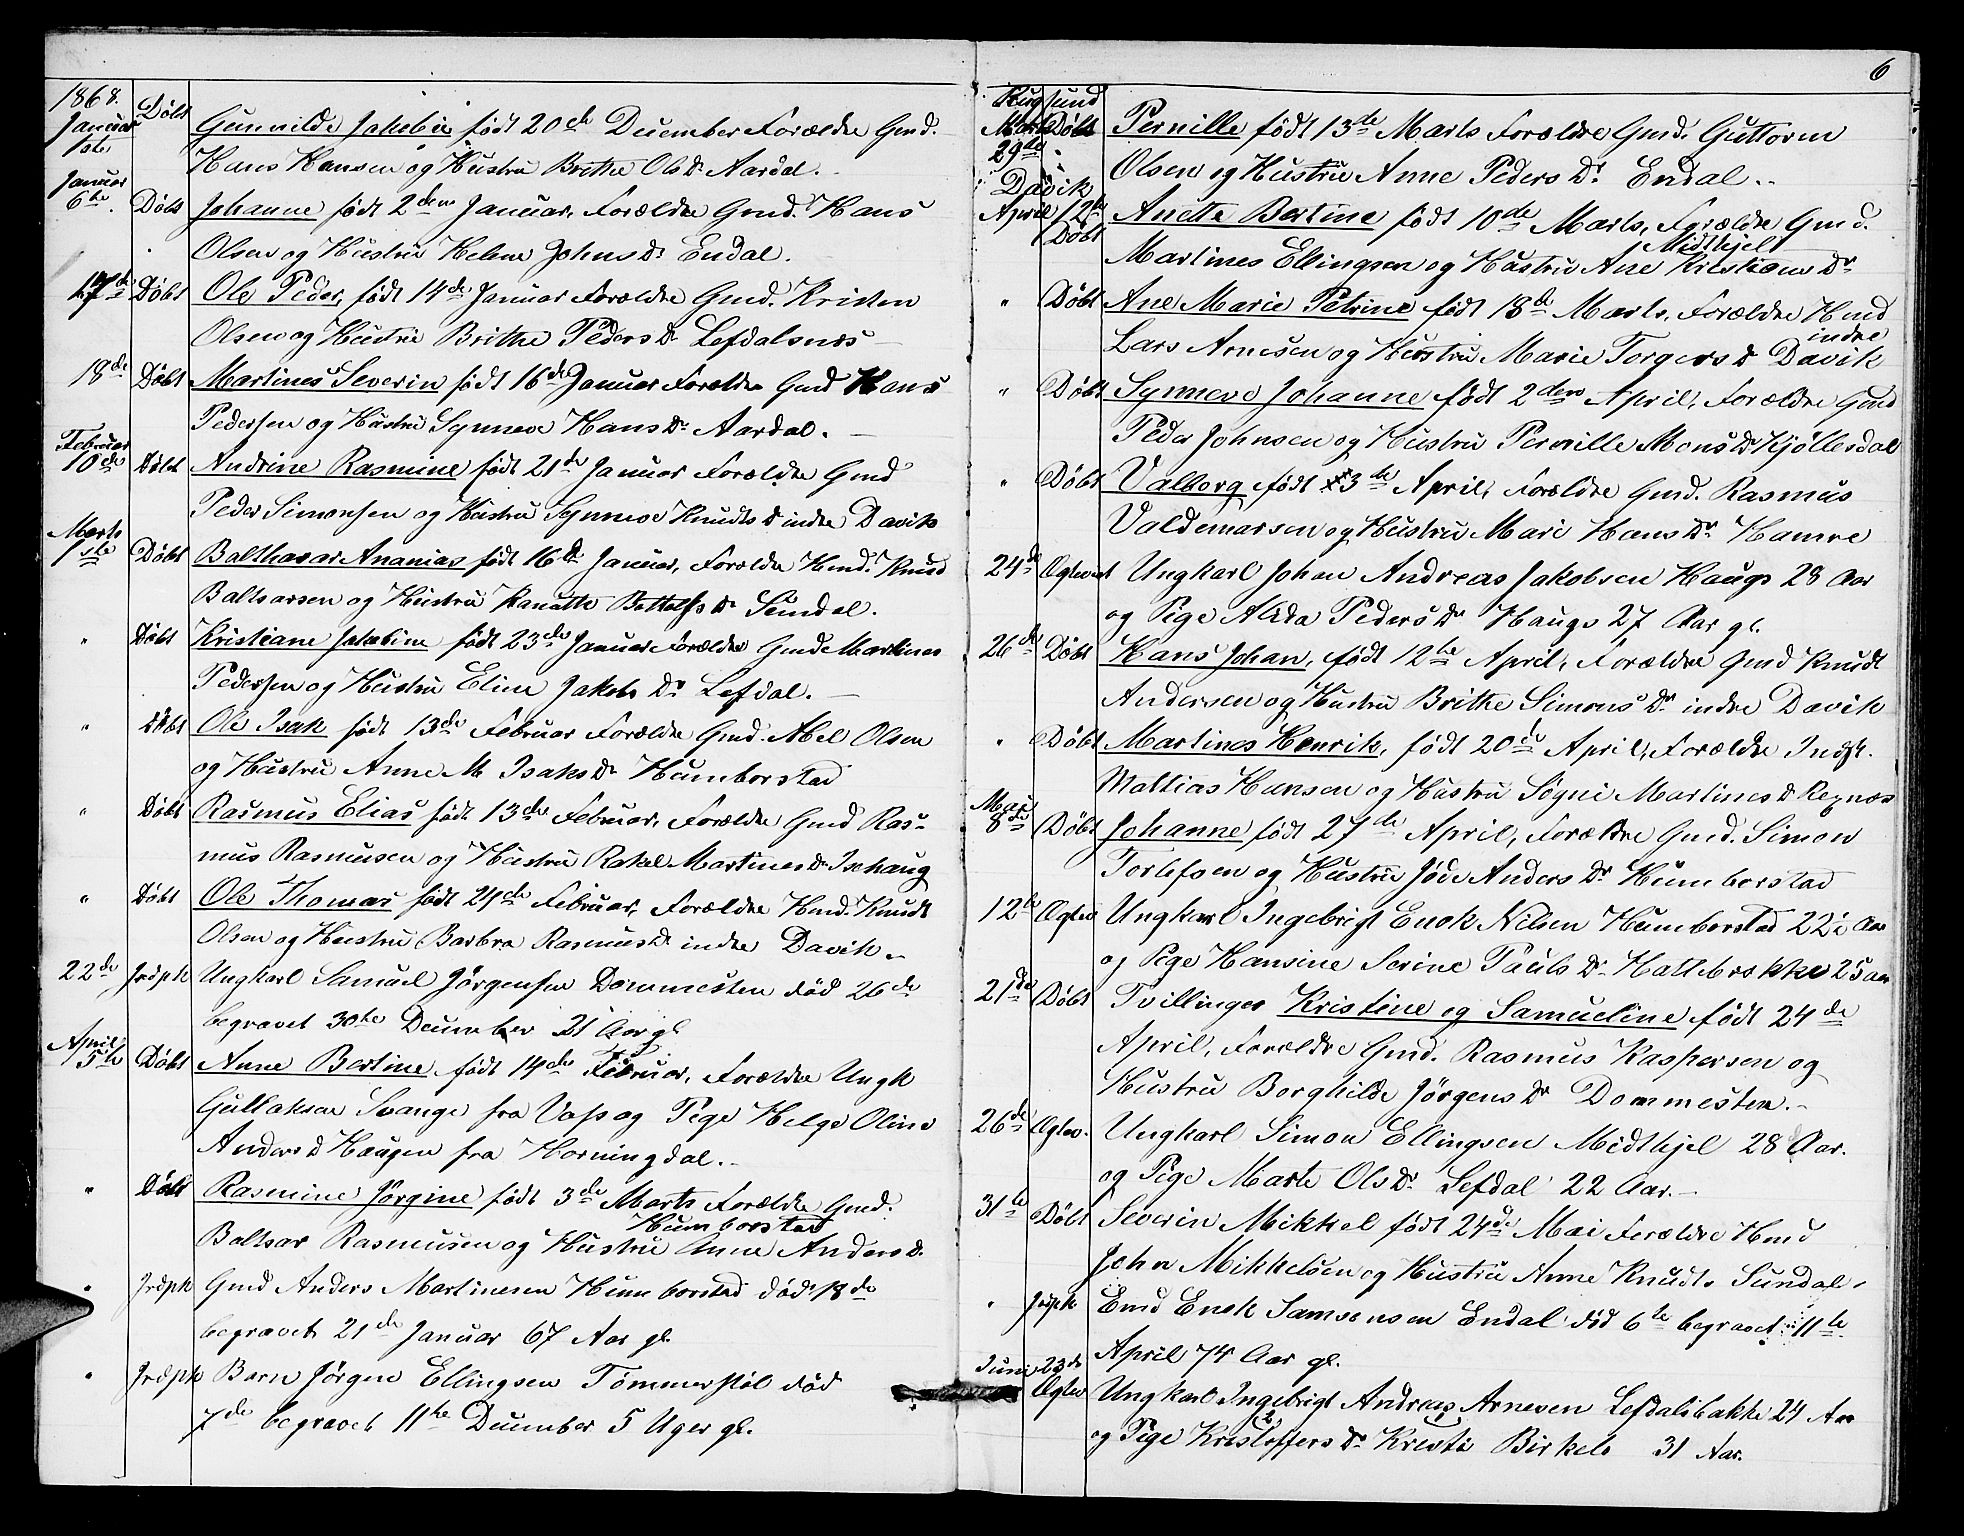 1868.
Januar 1ste Döbt Gunnilde Jakobie födt 20de December Forældre Gmd.
Hans Hansen og Hustru Brithe Ols Dr Aardal.
Januar 6te. Döbt Johanne födt 2den Januar, Forældre Gmd. Hans
Olsen og Hustru Helene Johns Dr Endal.
17de Döbt Ole Peder, födt 14de Januar Forældre Gmd. Kristen
Olsen og Hustru Brithe Peders Dr Lefdalsnæs
18de Döbt Martines Severin födt 16de Januar Forældre Gmd Hans
Pedersen og Hustru Synneve Hans Dr Aardal.
Februar 10de Döbt Andrine Rasmine födt 21de Januar Forældre Gmd
Peder Simonsen og Hustru Synneve Knudts D indre Davik
Marts 1ste Döbt Balthasar Ananias födt 16de Januar, Forældre Hmd. Knud
Baltsarsen og Hustru Dr Sundal.
" Döbt Kristiane Jakobine födt 23de Januar Forældre Gmd Martines
Pedersen og Hustru Eline Jakobs Dr Lefdal.
" Döbt Ole Isak födt 13de Februar Forældre Gmd. Abel Olsen
og Hustru Anne M. Isaks Dr Humborstad
" Döbt Rasmus Elias födt 13de Februar, Forældre Gmd Ras-
mus Rasmusen og Hustru Rakel Martines Dr Isehaug
" Döbt Ole Thomas födt 24de Februar, Forældre Hmd. Knudt
Olsen og Hustru Barbra Rasmus Dr indre Davik.
22de Jrdpk Ungkarl Samuel Jörgensen Dommesten död 26de
begravet 30te December 21 Aar gl
April 5te Döbt Anne Bertine födt 14de Februar, Forældre Ungk
Gullaksen Svange fra Vass og Pige Helge Oline
Anders D Haugen fra Horningdal.
" Döbt Rasmine Jörgine födt 3de Marts Forældre Gmd.
Humborstad
Baltsar Rasmusen og Hustru Anne Anders D.
" Jrdpk Gmd Anders Martinesen Humborstad död 18de
begravet 21de Januar 67 Aar gl.
" Jrdpk Barn Jörgen Ellingsen död
7de begravet 11te December 5 Uger gl.
6
Rugsund
Marts 29de Döbt Pernille födt 13de Marts Forældre Gmd. Guttorm
Olsen og Hustru Anne Peders Dr Endal.
Davik
April 12te Döbt Anette Bertine födt 10de Marts, Forældre Gmd.
Midthjel
Martines Ellingsen og Hustru Ane Kristians Dr
" Döbt Ane Marie Petrine födt 18de Marts, Forældre Hmd
indre
Lars Arnesen og Hustru Marie Torgers D Davik
" Döbt Synneve Johanne födt 2den April, Forældre Gmd
Peder Johnsen og Hustru Pernille Mons D Kjöllesdal
" Döbt Valborg födt 3de April, Forældre Gmd. Rasmus
Valdemarsen og Hustru Mari Hans Dr Hamre
24de Ægtev Ungkarl Johan Andreas Jakobsen Hauge 28 Aar
og Pige Alida Peders Dr Hauge 27 Aar gl.
26de Döbt Hans Johan, födt 12te April, Forældre Gmd Knudt
Andersen og Hustru Brithe Simons Dr indre Davik
" Döbt Martines Henrik, födt 20de April, Forældre Indst.
Mattias Hansen og Hustru Søgni Martines D
Mai 8de Döbt Johanne födt 27de April, Forældre Gmd. Simon
Torlefsen og Hustru Jöde Anders Dr Humborstad
12te Ægtev Ungkarl Ingebrigt Enok Nilsen Humborstad 22½ Aar
og Pige Hansine Serine Pauls Dr Hattebrække 25 aar
21de Döbt Tvillinger Kristine og Samueline födt 24de
April, Forældre Gmd. Rasmus Kaspersen og
Hustru Borghilde Jörgens Dr Dommesten.
26de Ægtev. Ungkarl Simon Ellingsen Midthjel 28 Aar.
og Pige Marte Ols Dr Lefdal 22 Aar.
31te Döbt Severin Mikkel födt 24de Mai Forældre Hmd
John Mikkelsen og Hustru Anne Knudts Sundal.
" Jrdpk Emd Enok Samsonsen Endal död 6te begravet 11te
April 74 Aar gl.
Juni 23de Ægtev Ungkarl Ingebrigt Andreas Arnesen Lefdalsbakke 24 Aar
og Pige Kristoffers Dr Kristi Birkelo 31 Aar.